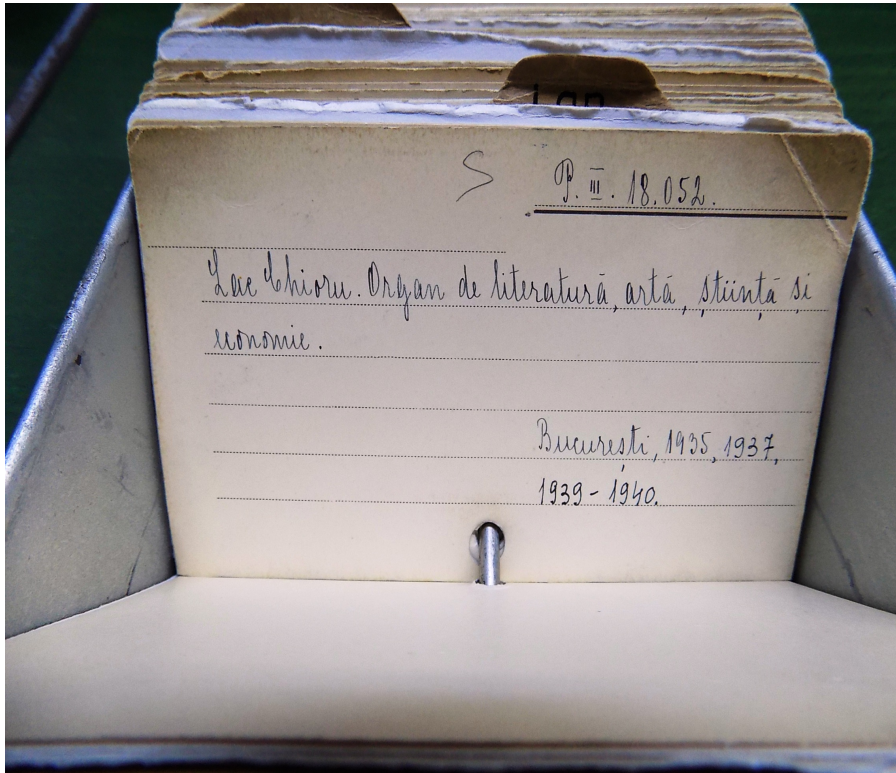 Ian
S
P. III. 18.052.
Lae Chioru. Organ de literatură, artă, știință și
economie.
București, 1935, 1937,
1939-1940.